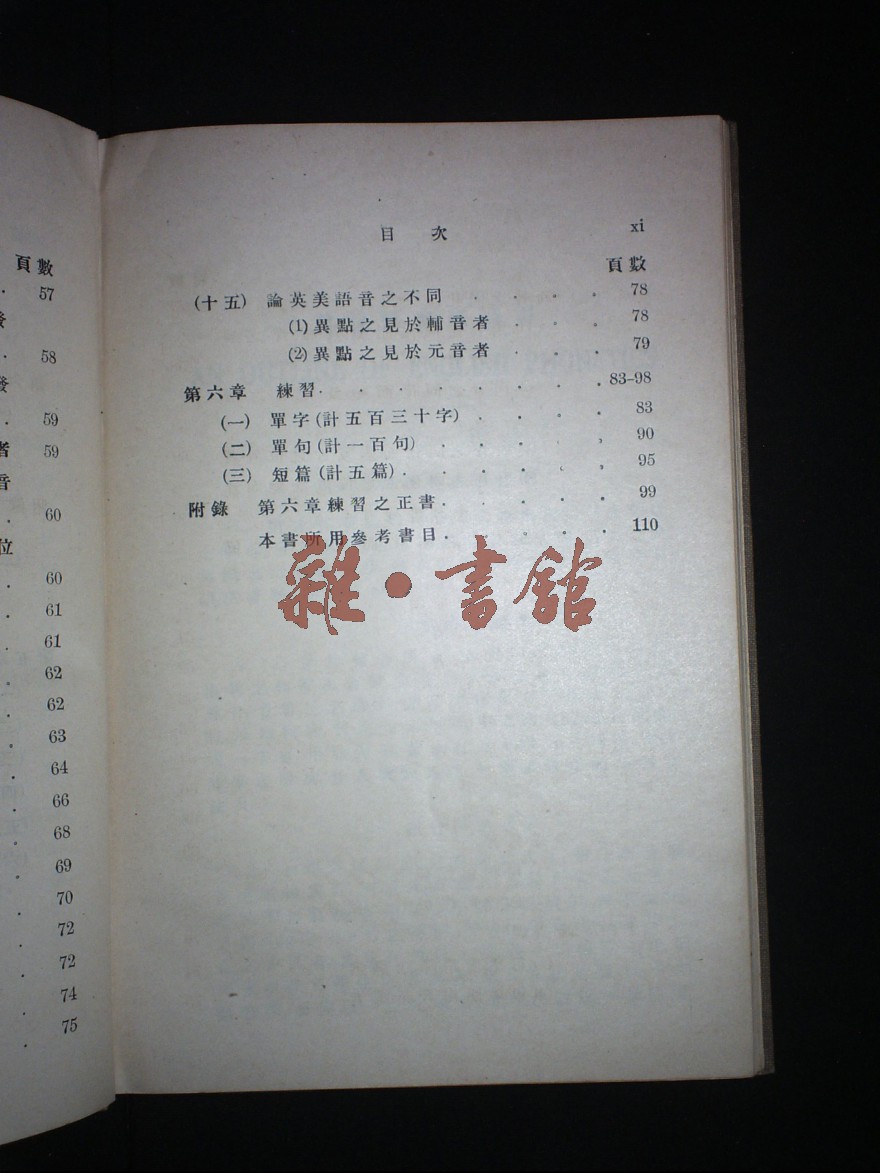 頁數
57
發
58
發
59
者 59
音
60
位
60
61
61
62
62
63
64
66
68
69
70
72
72
74
75
目 次 xi
頁數
(十五) 論英美語音之不同 . . . . . 78
(1) 異點之見於輔音者 . . . . 78
(2) 異點之見於元音者 . . . . 79
第六章 練習 . . . . . . . . 83–98
(一) 單字(計五百三十字) . . . . . 83
(二) 單句(計一百句) . . . . . . 90
(三) 短篇(計五篇) . . . . . . . 95
附錄 第六章練習之正書 . . . . . . 99
本書所用參考書目 . . . . . . 110
雜·書館